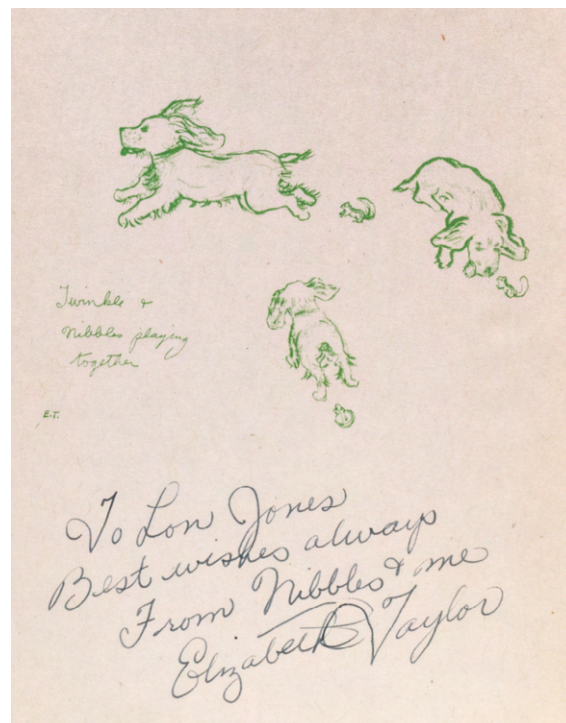 Twinkle &
Nibbles playing
together
E.T.
To Lon Jones
Best wishes always
From Nibbles & me
Elizabeth Taylor